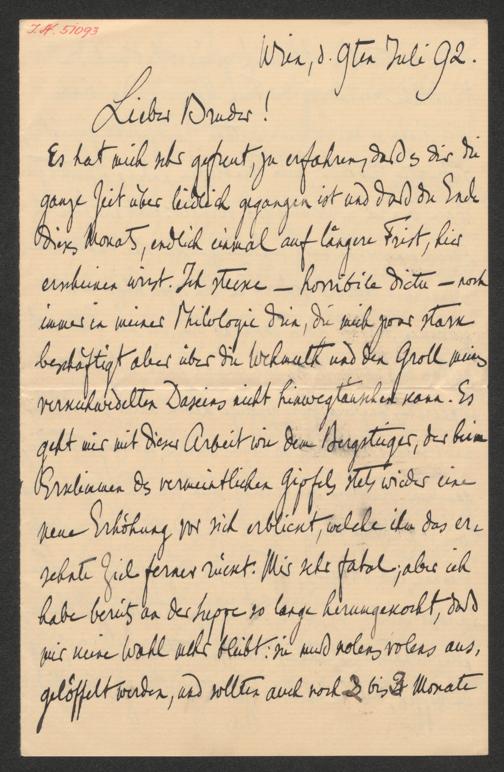 I.N. 51093
Wien, d. 9ten Juli 92.
Lieber Bruder!
Es hat mich sehr gefreut, zu erfahren, dass es dir die
ganze Zeit über leidlich gegangen ist und dass du Ende
dieses Monats, endlich einmal auf längere Frist, hier
erscheinen wirst. Ich stecke – horribile dictu – noch
immer in meiner Philologie drin, die mich zwar stark
beschäftigt aber über die Wehmuth und den Groll meines
verschwedelten Daseins nicht hinwegtäuschen kann. Es
geht mir mit dieser Arbeit wie dem Bergsteiger, der beim
Erklimmen des vermeintlichen Gipfels stets wieder eine
neue Erhöhung vor sich erblickt, welche ihm das er-
sehnte Ziel ferner rückt. Mir sehr fatal; aber ich
habe bereits an der Suppe so lange herumgekocht, dass
mir keine Wahl mehr bleibt: sie muss nolens volens aus-
gelöffelt werden, und sollten auch noch 2 bis 3 Monate